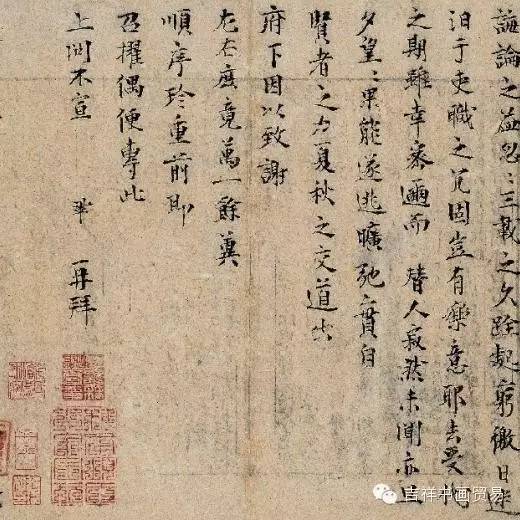 誨論之益忽〻三載之久跧處窮徼日迷
汩于吏職之冗固豈有樂意耶去受代
之期雖幸密邇而 替人寂然未聞亦旦
夕望〻果能遂逃曠弛實自
賢者之力夏秋之交道出
府下因以致謝
左右庶竟萬一餘冀
順序珍重前即
召擢偶便專此
上問不宣 鞏 再拜
吉祥书画贸易